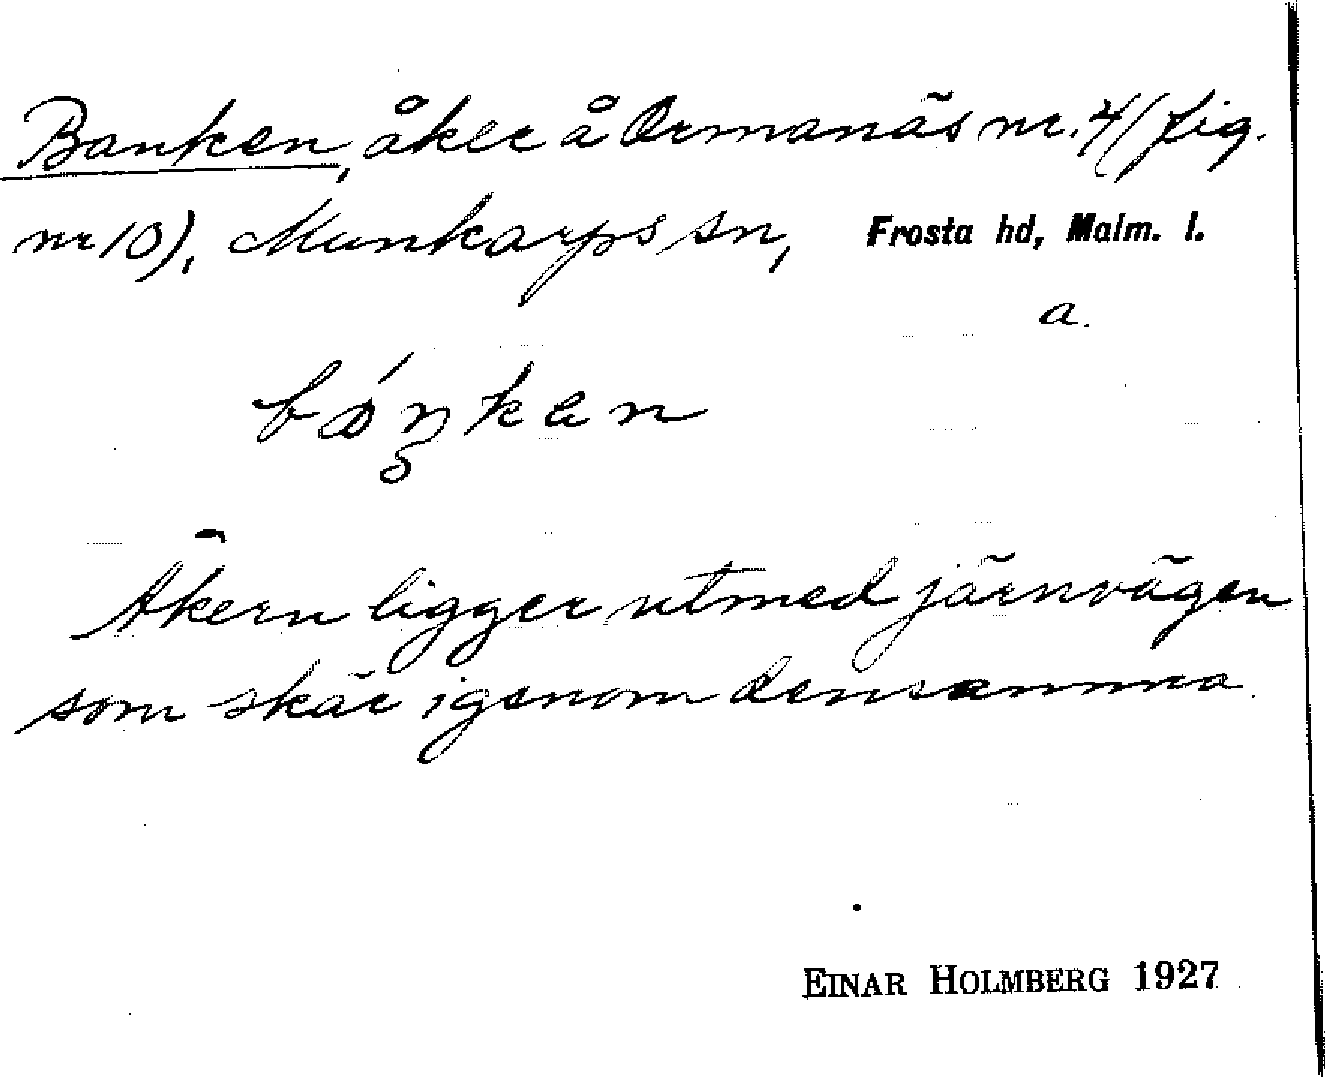 Banken, åker å Ormanäs nr. 4 (fig.
nr 10), Munkarps sn, Frosta hd, Malm. l.
a.
Åkern ligger utmed järnvägen
som skär igenom densamma.
EINAR HOLMBERG 1927